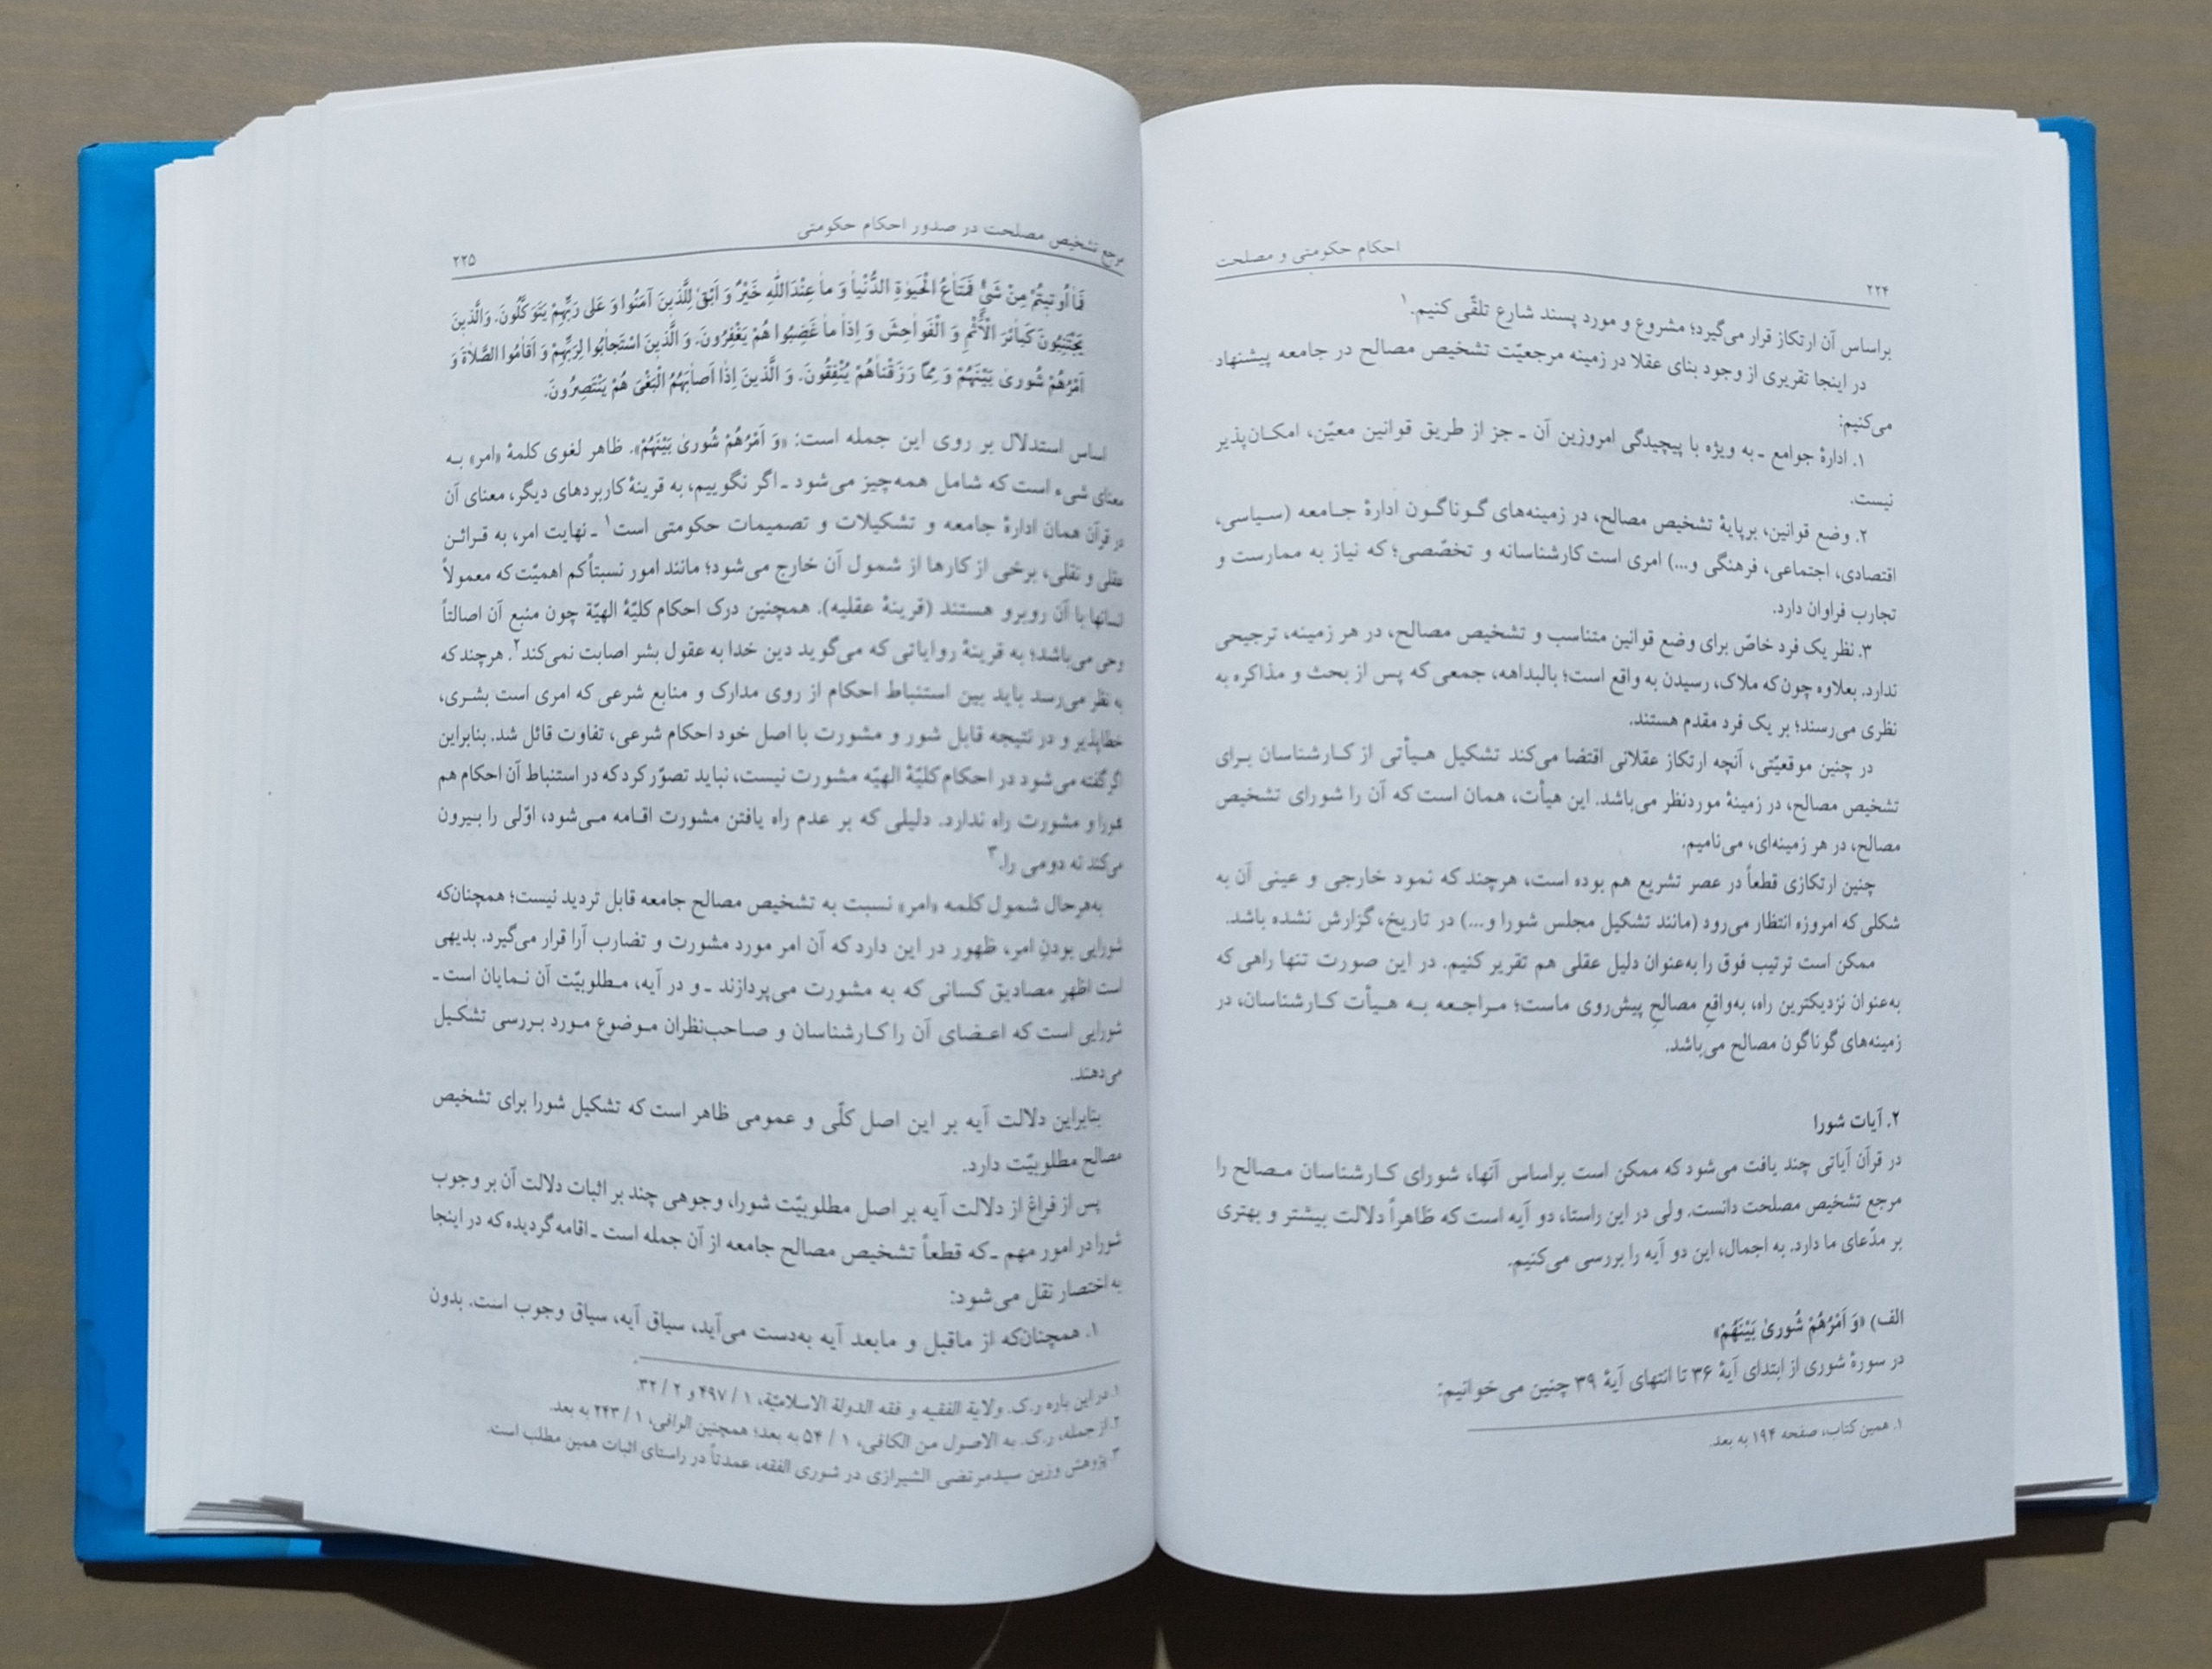 ۲۲۴
احکام حکومتی و مصلحت
براساس آن ارتکاز قرار می‌گیرد؛ مشروع و مورد پسند شارع تلقّی کنیم.۱
در اینجا تقریری از وجود بنای عقلا در زمینه مرجعیّت تشخیص مصالح در جامعه پیشنهاد
می‌کنیم:
۱. ادارهٔ جوامع ـ به ویژه با پیچیدگی امروزین آن ـ جز از طریق قوانین معیّن، امکان‌پذیر
نیست.
۲. وضع قوانین، برپایهٔ تشخیص مصالح، در زمینه‌های گوناگون ادارهٔ جامعه (سیاسی،
اقتصادی، اجتماعی، فرهنگی و...) امری است کارشناسانه و تخصّصی؛ که نیاز به ممارست و
تجارب فراوان دارد.
۳. نظر یک فرد خاصّ برای وضع قوانین متناسب و تشخیص مصالح، در هر زمینه، ترجیحی
ندارد. بعلاوه چون‌که ملاک، رسیدن به واقع است؛ بالبداهه، جمعی که پس از بحث و مذاکره به
نظری می‌رسند؛ بر یک فرد مقدم هستند.
در چنین موقعیّتی، آنچه ارتکاز عقلانی اقتضا می‌کند تشکیل هیأتی از کارشناسان برای
تشخیص مصالح، در زمینهٔ موردنظر می‌باشد. این هیأت، همان است که آن را شورای تشخیص
مصالح، در هر زمینه‌ای، می‌نامیم.
چنین ارتکازی قطعاً در عصر تشریع هم بوده است، هرچند که نمود خارجی و عینی آن به
شکلی که امروزه انتظار می‌رود (مانند تشکیل مجلس شورا و...) در تاریخ، گزارش نشده باشد.
ممکن است ترتیب فوق را به‌عنوان دلیل عقلی هم تقریر کنیم. در این صورت تنها راهی که
به‌عنوان نزدیکترین راه، به‌واقعِ مصالحِ پیش‌روی ماست؛ مراجعه به هیأت کارشناسان، در
زمینه‌های گوناگون مصالح می‌باشد.
۲. آیات شورا
در قرآن آیاتی چند یافت می‌شود که ممکن است براساس آنها، شورای کارشناسان مصالح را
مرجع تشخیص مصلحت دانست. ولی در این راستا، دو آیه است که ظاهراً دلالت بیشتر و بهتری
بر مدّعای ما دارد. به اجمال، این دو آیه را بررسی می‌کنیم.
الف) «وَ اَمْرُهُمْ شُوریٰ بَیْنَهُمْ»
در سورهٔ شوری از ابتدای آیهٔ ۳۶ تا انتهای آیهٔ ۳۹ چنین می‌خوانیم:
۱. همین کتاب، صفحه ۱۹۴ به بعد.
مرجع تشخیص مصلحت در صدور احکام حکومتی
۲۲۵
فَمٰا اُوتیتُمْ مِنْ شَیْءٍ فَمَتٰاعُ الْحَیٰوةِ الدُّنْیٰا وَ مٰا عِنْدَاللّٰهِ خَیْرٌ وَ اَبْقیٰ لِلَّذینَ آمَنُوا وَ عَلی رَبِّهِمْ یَتَوَکَّلُونَ. وَالَّذینَ
یَجْتَنِبُونَ کَبٰائِرَ الْاِثْمِ وَ الْفَوٰاحِشَ وَ اِذٰا مٰا غَضِبُوا هُمْ یَغْفِرُونَ. وَ الَّذینَ اسْتَجٰابُوا لِرَبِّهِمْ وَ اَقٰامُوا الصَّلاٰةَ وَ
اَمْرُهُمْ شُوریٰ بَیْنَهُمْ وَ مِمّٰا رَزَقْنٰاهُمْ یُنْفِقُونَ. وَ الَّذینَ اِذٰا اَصٰابَهُمُ الْبَغْیُ هُمْ یَنْتَصِرُونَ.
اساس استدلال بر روی این جمله است: «وَ اَمْرُهُمْ شُوریٰ بَیْنَهُمْ». ظاهر لغوی کلمهٔ «امر» به
معنای شیء است که شامل همه‌چیز می‌شود ـ اگر نگوییم، به قرینهٔ کاربردهای دیگر، معنای آن
در قرآن همان ادارهٔ جامعه و تشکیلات و تصمیمات حکومتی است۱ ـ نهایت امر، به قرائن
عقلی و نقلی، برخی از کارها از شمول آن خارج می‌شود؛ مانند امور نسبتاً کم اهمیّت که معمولاً
انسانها با آن روبرو هستند (قرینهٔ عقلیه). همچنین درک احکام کلیّهٔ الهیّة چون منبع آن اصالتاً
وحی می‌باشد؛ به قرینهٔ روایاتی که می‌گوید دین خدا به عقول بشر اصابت نمی‌کند۲. هرچند که
به نظر می‌رسد باید بین استنباط احکام از روی مدارک و منابع شرعی که امری است بشری،
خطاپذیر و در نتیجه قابل شور و مشورت با اصل خود احکام شرعی، تفاوت قائل شد. بنابراین
اگر گفته می‌شود در احکام کلیّهٔ الهیّه مشورت نیست، نباید تصوّر کرد که در استنباط آن احکام هم
شورا و مشورت راه ندارد. دلیلی که بر عدم راه یافتن مشورت اقامه می‌شود، اوّلی را بیرون
می‌کند نه دومی را.۳
به‌هرحال شمول کلمه «امر» نسبت به تشخیص مصالح جامعه قابل تردید نیست؛ همچنان‌که
شورایی بودنِ امر، ظهور در این دارد که آن امر مورد مشورت و تضارب آرا قرار می‌گیرد. بدیهی
است اظهر مصادیق کسانی که به مشورت می‌پردازند ـ و در آیه، مطلوبیّت آن نمایان است ـ
شورایی است که اعضای آن را کارشناسان و صاحب‌نظران موضوع مورد بررسی تشکیل
می‌دهند.
بنابراین دلالت آیه بر این اصل کلّی و عمومی ظاهر است که تشکیل شورا برای تشخیص
مصالح مطلوبیّت دارد.
پس از فراغ از دلالت آیه بر اصل مطلوبیّت شورا، وجوهی چند بر اثبات دلالت آن بر وجوب
شورا در امور مهم ـ که قطعاً تشخیص مصالح جامعه از آن جمله است ـ اقامه گردیده که در اینجا
به اختصار نقل می‌شود:
۱. همچنان‌که از ماقبل و مابعد آیه به‌دست می‌آید، سیاق آیه، سیاق وجوب است. بدون
۱. در این باره ر.ک. ولایة الفقیه و فقه الدولة الاسلامیّة، ۱ / ۴۹۷ و ۲ / ۳۲.
۲. از جمله، ر.ک. به الاصول من الکافی، ۱ / ۵۴ به بعد؛ همچنین الوافی، ۱ / ۲۴۳ به بعد.
۳. پژوهش وزین سیدمرتضی الشیرازی در شوری الفقه، عمدتاً در راستای اثبات همین مطلب است.